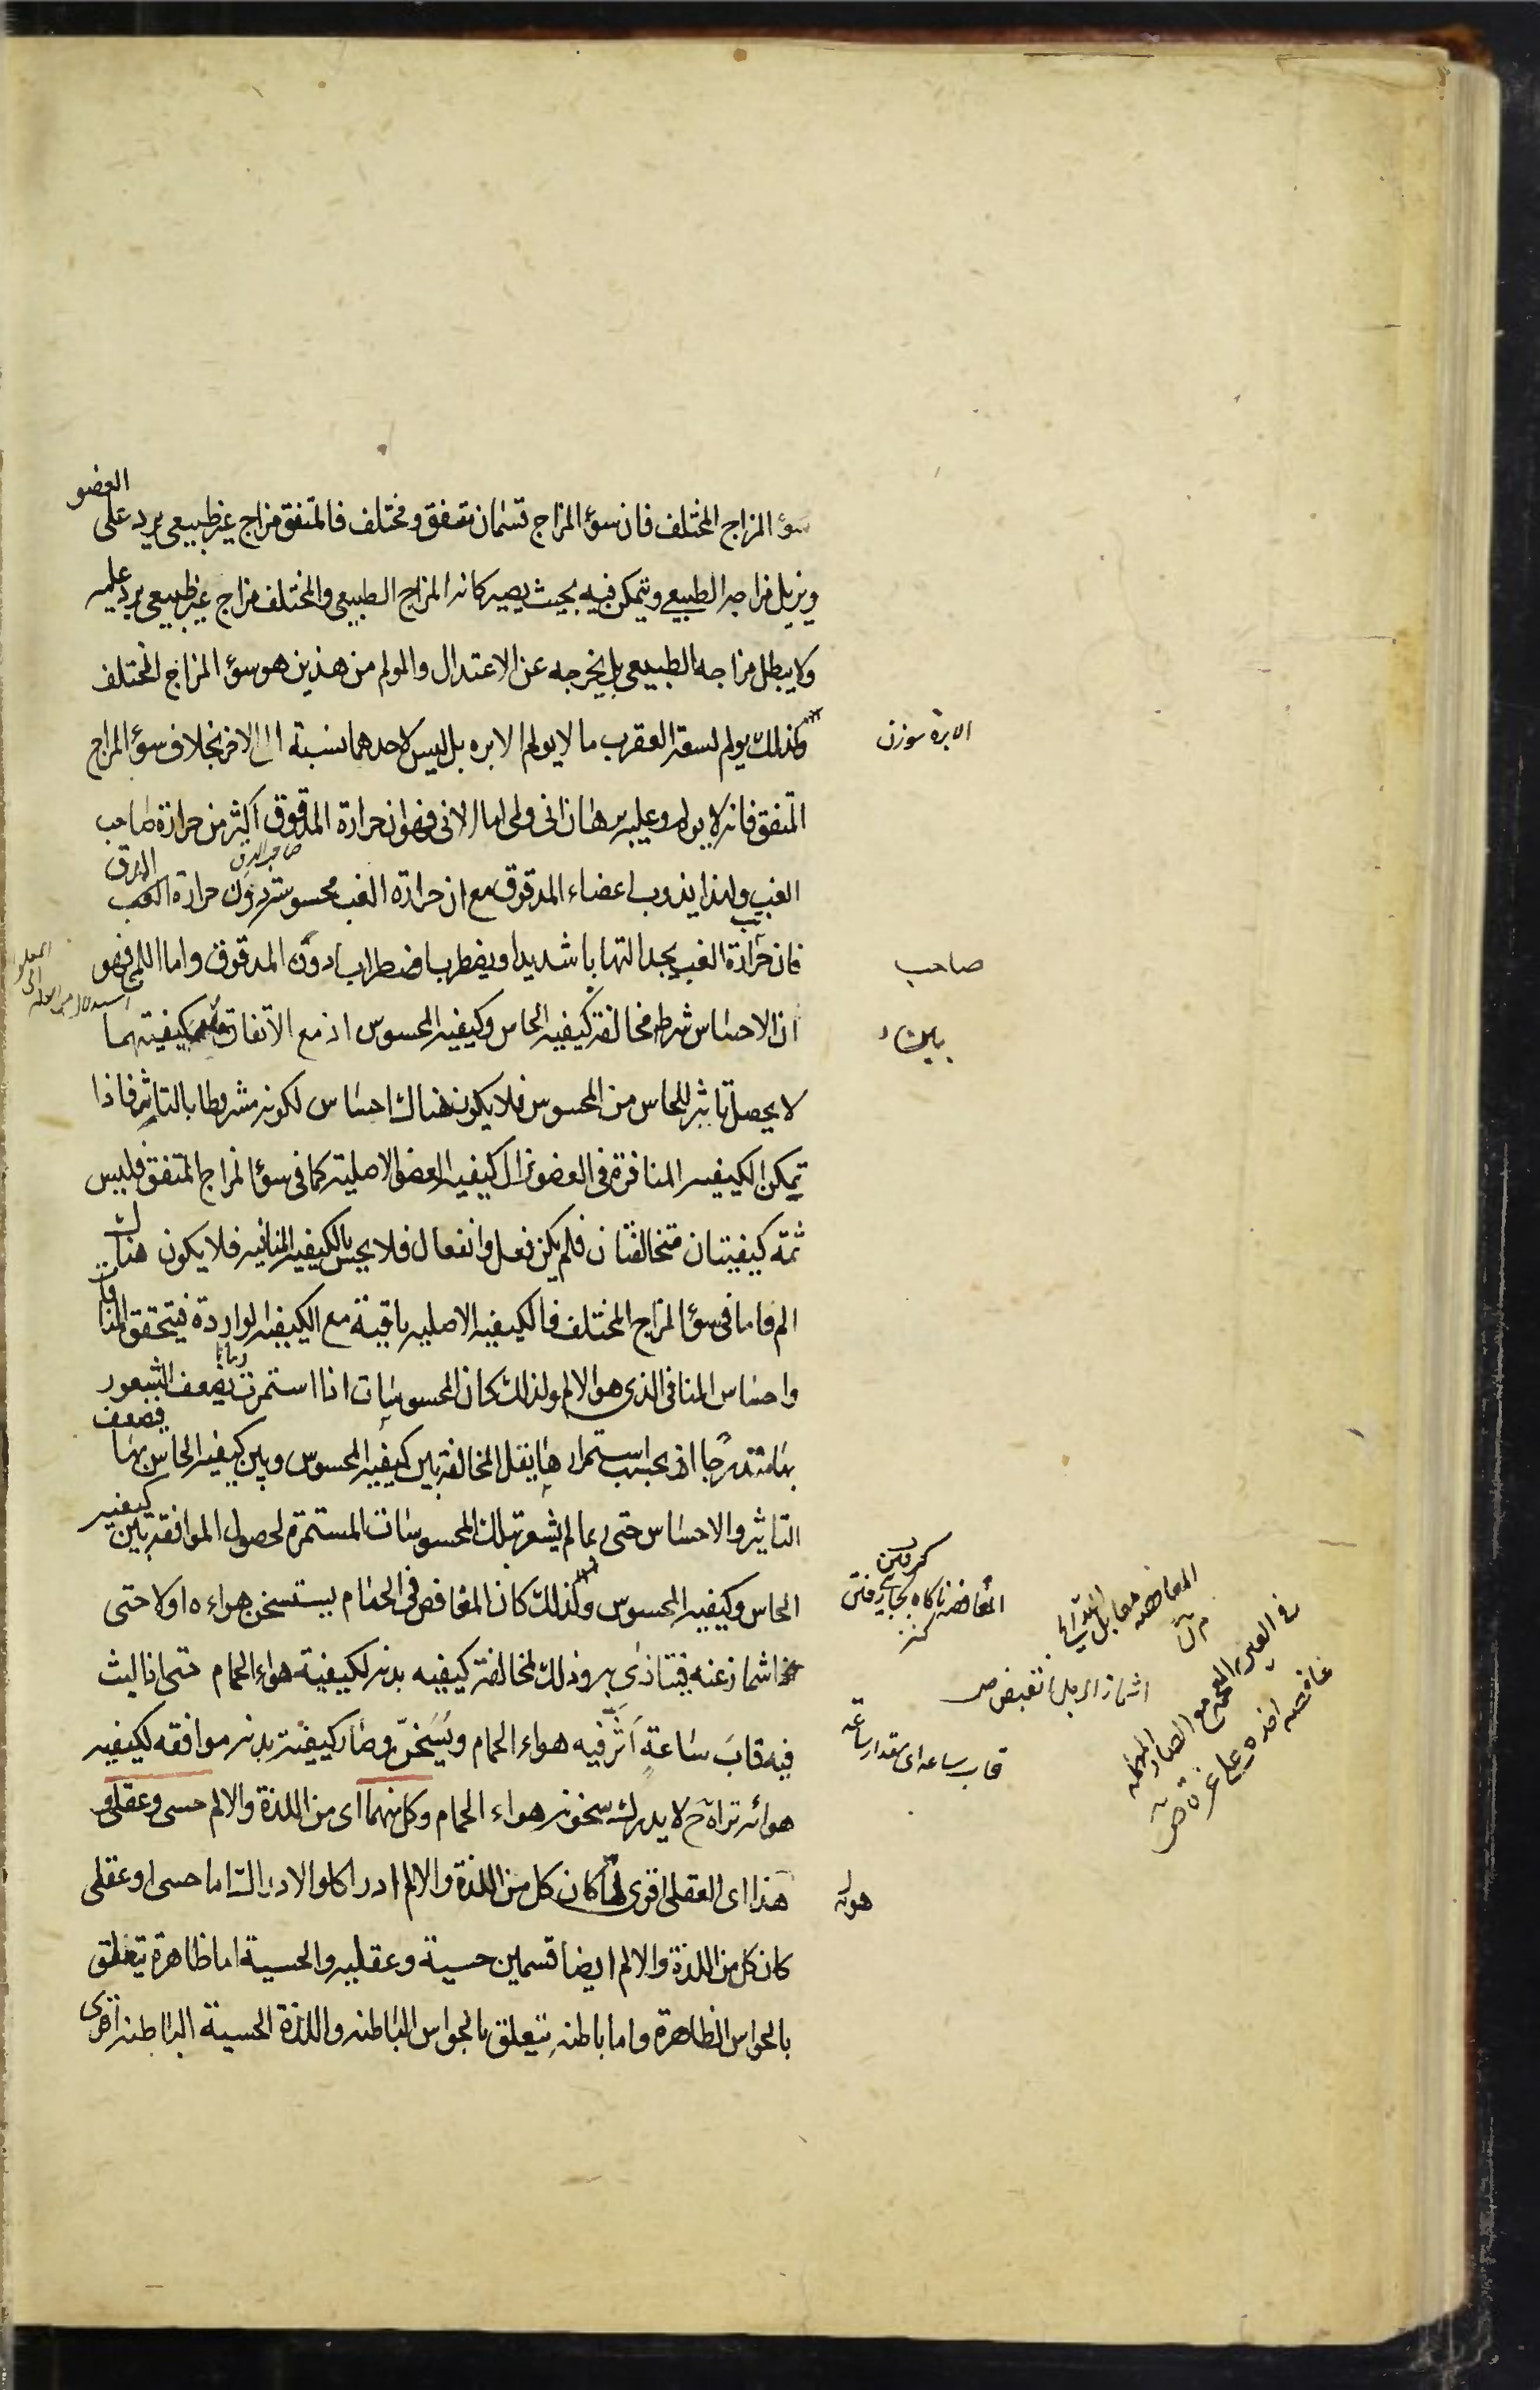 سوء المزاج المختلف فان سوء المزاج قسمان متفق ومختلف فالمتفق مزاج غير طبيعى يرد على العضو
ويزيل مزاجه الطبيعى ويتمكن فيه بحيث يصير كانه المزاج الطبيعى والمختلف مزاج غير طبيعى يرد عليه
ولا يبطل مزاجه الطبيعى بل يخرجه عن الاعتدال والمولم من هذين هو سوء المزاج المختلف
ولذلك يولم لسعة العقرب ما لا يولم الابره بل ليس لاحدهما نسبة الى الاخر بخلاف سوء المزاج
المتفق فانه لا يولم وعليه برهان انى ولمى اما الانى فهو ان حرارة المدقوق اكثر من حرارة صاحب
الغب ولهذا يذوب اعضاء المدقوق مع ان حرارة الغب محسوسة دون حرارة الدق
فان صاحب الغب يجد التهابا شديدا ويضطرب اضطرابا دون المدقوق واما اللمى فهو
ان الاحساس شرطه مخالفة كيفية الحاس وكيفية المحسوس اذ مع الاتفاق كيفيتهما
لا يحصل تاثير للحاس من المحسوس فلا يكون هناك احساس لكونه مشروطا بالتاثر فاذا
تمكن الكيفيه المنافرة فى العضو تزال كيفية العضو الاصلية كما فى سوء المزاج المتفق فليس
ثمة كيفيتان متخالفتان فلم يكن فعل وانفعال فلا يحس بالكيفية المنافية فلا يكون هناك
الم فاما فى سوء المزاج المختلف فالكيفية الاصليه باقية مع الكيفية الواردة فيتحقق المنافاة
واحساس المنافى الذى هو الالم ولذلك كان المحسوسات اذا استمرت زمانا يضعف الشعور
بها متدرجا اذ بحسب استمرارها يقل المخالفة بين كيفية المحسوس وبين كيفية الحاس بها فيضعف
التاثر والاحساس حتى ربما لم يشعر بتلك المحسوسات المستمرة لحصول الموافقة بين كيفية
الحاس وكيفية المحسوس ولذلك كان المغافص فى الحمام يستسخن هواءه اولا حتى
اشماز عنه فيتاذى به وذلك لمخالفة كيفيه بدنه لكيفية هواء الحمام حتى اذا لبث
فيه قاب ساعة اثر فيه هواء الحمام ويسخن وصار كيفية بدنه موافقه لكيفيه
هوائه تراه ح لا يدرك سخونه هواء الحمام وكل منهما اى من اللذة والالم حسى وعقلى و
هذا اى العقلى اقوى لما كان كل من اللذة والالم ادراكا والادراك اما حسى او عقلى
كان كل من اللذة والالم ايضا قسمين حسية وعقليه والحسية اما ظاهرة يتعلق
بالحواس الظاهرة واما باطنه يتعلق بالحواس الباطنه واللذة الحسية الباطنه اقوى
الابرة سوزن
صاحب
صاحب الدق
المغافصة ناكاه بجاى رفتن
اشماز الرجل انقبض ص
قاب ساعه اى مقدار ساعة
غافصه اخذه على غرة ص